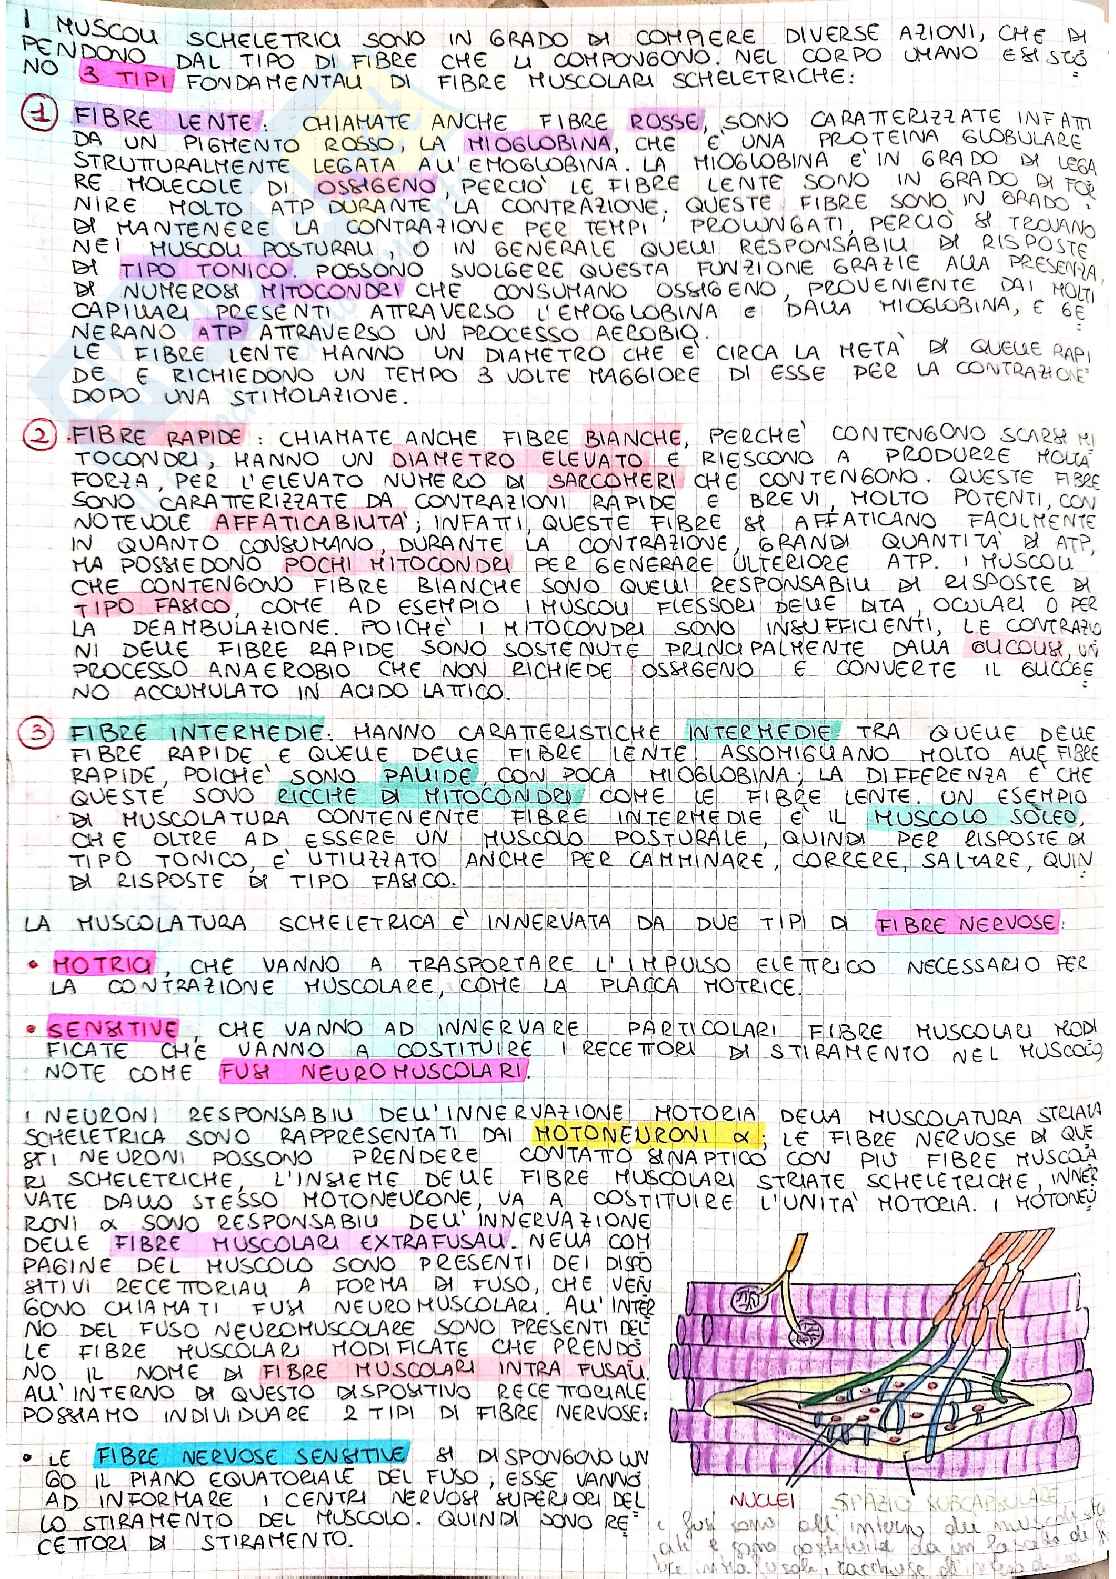 I MUSCOLI SCHELETRICI SONO IN GRADO DI COMPIERE DIVERSE AZIONI, CHE DI
PENDONO DAL TIPO DI FIBRE CHE LI COMPONGONO. NEL CORPO UMANO ESISTO
NO 3 TIPI FONDAMENTALI DI FIBRE MUSCOLARI SCHELETRICHE:
1 FIBRE LENTE: CHIAMATE ANCHE FIBRE ROSSE, SONO CARATTERIZZATE INFATTI
DA UN PIGMENTO ROSSO, LA MIOGLOBINA, CHE E' UNA PROTEINA GLOBULARE
STRUTTURALMENTE LEGATA ALL'EMOGLOBINA. LA MIOGLOBINA E' IN GRADO DI LEGA
RE MOLECOLE DI OSSIGENO, PERCIO' LE FIBRE LENTE SONO IN GRADO DI FOR
NIRE MOLTO ATP DURANTE LA CONTRAZIONE; QUESTE FIBRE SONO IN GRADO
DI MANTENERE LA CONTRAZIONE PER TEMPI PROLUNGATI, PERCIO' SI TROVANO
NEI MUSCOLI POSTURALI, O IN GENERALE QUELLI RESPONSABILI DI RISPOSTE
DI TIPO TONICO. POSSONO SVOLGERE QUESTA FUNZIONE GRAZIE ALLA PRESENZA
DI NUMEROSI MITOCONDRI CHE CONSUMANO OSSIGENO, PROVENIENTE DAI MOLTI
CAPILLARI PRESENTI ATTRAVERSO L'EMOGLOBINA e DALLA MIOGLOBINA, E GE
NERANO ATP ATTRAVERSO UN PROCESSO AEROBIO.
LE FIBRE LENTE HANNO UN DIAMETRO CHE E' CIRCA LA META' DI QUELLE RAPI
DE E RICHIEDONO UN TEMPO 3 VOLTE MAGGIORE DI ESSE PER LA CONTRAZIONE
DOPO UNA STIMOLAZIONE.
2 FIBRE RAPIDE: CHIAMATE ANCHE FIBRE BIANCHE, PERCHE' CONTENGONO SCARSI MI
TOCONDRI, HANNO UN DIAMETRO ELEVATO E RIESCONO A PRODURRE MOLTA
FORZA, PER L'ELEVATO NUMERO DI SARCOMERI CHE CONTENGONO. QUESTE FIBRE
SONO CARATTERIZZATE DA CONTRAZIONI RAPIDE E BREVI, MOLTO POTENTI, CON
NOTEVOLE AFFATICABILITA'; INFATTI, QUESTE FIBRE SI AFFATICANO FACILMENTE
IN QUANTO CONSUMANO, DURANTE LA CONTRAZIONE, GRANDI QUANTITA' DI ATP,
MA POSSIEDONO POCHI MITOCONDRI PER GENERARE ULTERIORE ATP. I MUSCOLI
CHE CONTENGONO FIBRE BIANCHE SONO QUELLI RESPONSABILI DI RISPOSTE DI
TIPO FASICO, COME AD ESEMPIO I MUSCOLI FLESSORI DELLE DITA, OCULARI O PER
LA DEAMBULAZIONE. POICHE' I MITOCONDRI SONO INSUFFICIENTI, LE CONTRAZIO
NI DELLE FIBRE RAPIDE SONO SOSTENUTE PRINCIPALMENTE DALLA GLICOLISI, UN
PROCESSO ANAEROBIO CHE NON RICHIEDE OSSIGENO E CONVERTE IL GLICOGE
NO ACCUMULATO IN ACIDO LATTICO.
3 FIBRE INTERMEDIE: HANNO CARATTERISTICHE INTERMEDIE TRA QUELLE DELLE
FIBRE RAPIDE E QUELLE DELLE FIBRE LENTE. ASSOMIGLIANO MOLTO ALLE FIBRE
RAPIDE, POICHE' SONO PALLIDE CON POCA MIOGLOBINA; LA DIFFERENZA E' CHE
QUESTE SONO RICCHE DI MITOCONDRI COME LE FIBRE LENTE. UN ESEMPIO
DI MUSCOLATURA CONTENENTE FIBRE INTERMEDIE E' IL MUSCOLO SOLEO,
CHE OLTRE AD ESSERE UN MUSCOLO POSTURALE, QUINDI PER RISPOSTE DI
TIPO TONICO, E' UTILIZZATO ANCHE PER CAMMINARE, CORRERE, SALTARE, QUIN
DI RISPOSTE DI TIPO FASICO.
LA MUSCOLATURA SCHELETRICA E' INNERVATA DA DUE TIPI DI FIBRE NERVOSE:
• MOTRICI, CHE VANNO A TRASPORTARE L'IMPULSO ELETTRICO NECESSARIO PER
LA CONTRAZIONE MUSCOLARE, COME LA PLACCA MOTRICE.
• SENSITIVE, CHE VANNO AD INNERVARE PARTICOLARI FIBRE MUSCOLARI MODI
FICATE CHE VANNO A COSTITUIRE I RECETTORI DI STIRAMENTO NEL MUSCOLO,
NOTE COME FUSI NEUROMUSCOLARI.
I NEURONI RESPONSABILI DELL'INNERVAZIONE MOTORIA DELLA MUSCOLATURA STRIATA
SCHELETRICA SONO RAPPRESENTATI DAI MOTONEURONI α; LE FIBRE NERVOSE DI QUE
STI NEURONI POSSONO PRENDERE CONTATTO SINAPTICO CON PIU' FIBRE MUSCOLA
RI SCHELETRICHE, L'INSIEME DELLE FIBRE MUSCOLARI STRIATE SCHELETRICHE, INNER
VATE DALLO STESSO MOTONEURONE, VA A COSTITUIRE L'UNITA' MOTORIA. I MOTONEU
RONI α SONO RESPONSABILI DELL'INNERVAZIONE
DELLE FIBRE MUSCOLARI EXTRAFUSALI. NELLA COM
PAGINE DEL MUSCOLO SONO PRESENTI DEI DISPO
SITIVI RECETTORIALI A FORMA DI FUSO, CHE VEN
GONO CHIAMATI FUSI NEUROMUSCOLARI. ALL'INTER
NO DEL FUSO NEUROMUSCOLARE SONO PRESENTI DEL
LE FIBRE MUSCOLARI MODIFICATE CHE PRENDO
NO IL NOME DI FIBRE MUSCOLARI INTRA FUSALI.
ALL'INTERNO DI QUESTO DISPOSITIVO RECETTORIALE
POSSIAMO INDIVIDUARE 2 TIPI DI FIBRE NERVOSE:
• LE FIBRE NERVOSE SENSITIVE SI DISPONGONO LUN
GO IL PIANO EQUATORIALE DEL FUSO, ESSE VANNO
AD INFORMARE I CENTRI NERVOSI SUPERIORI DEL
LO STIRAMENTO DEL MUSCOLO. QUINDI SONO RE
CETTORI DI STIRAMENTO.
NUCLEI SPAZIO SUBCAPSULARE
i fusi sono all'interno dei muscoli
e sono da un fascio di